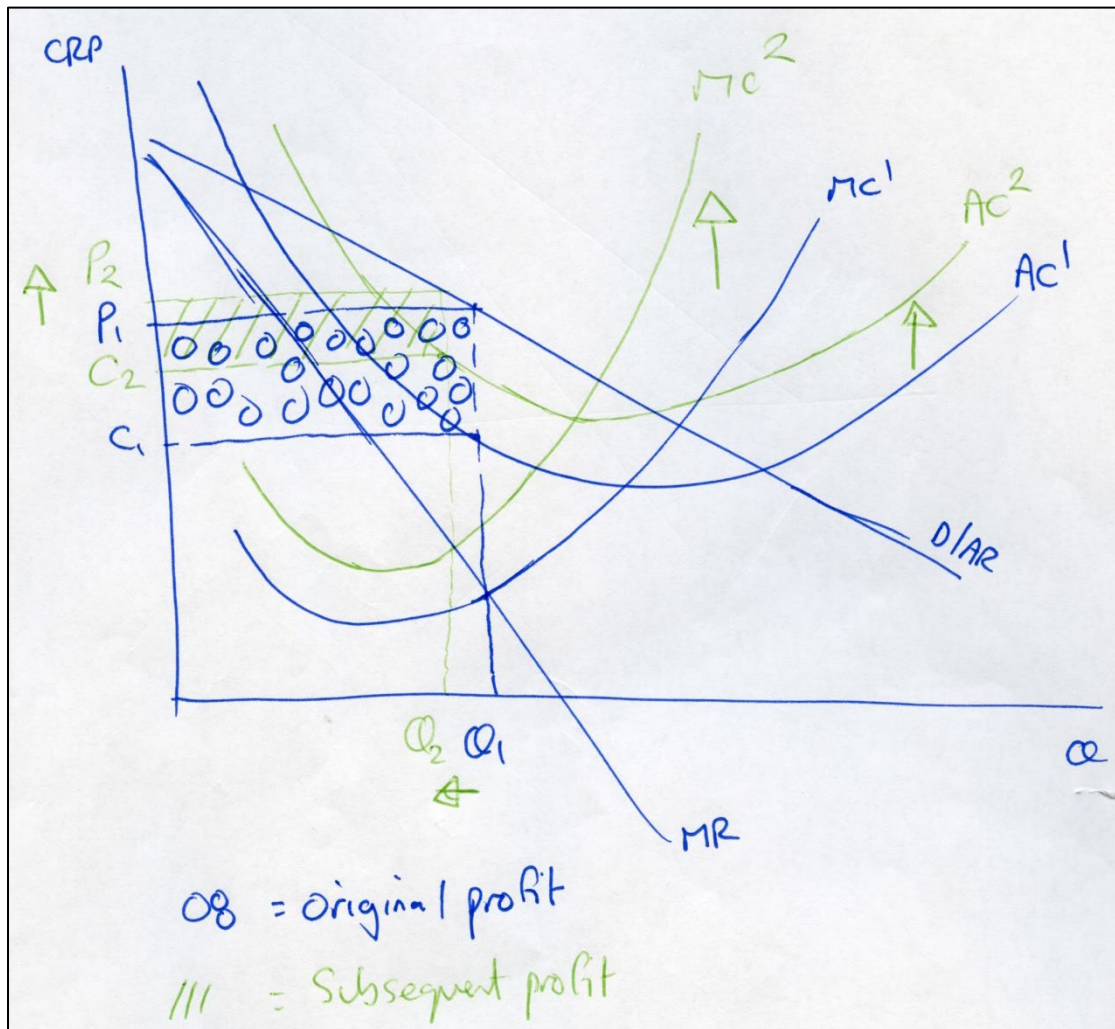 CRP
MC²
MC¹
AC²
AC¹
P₂
P₁
C₂
C₁
D/AR
Q₂ Q₁
Q
MR
= Original profit
/// = Subsequent profit